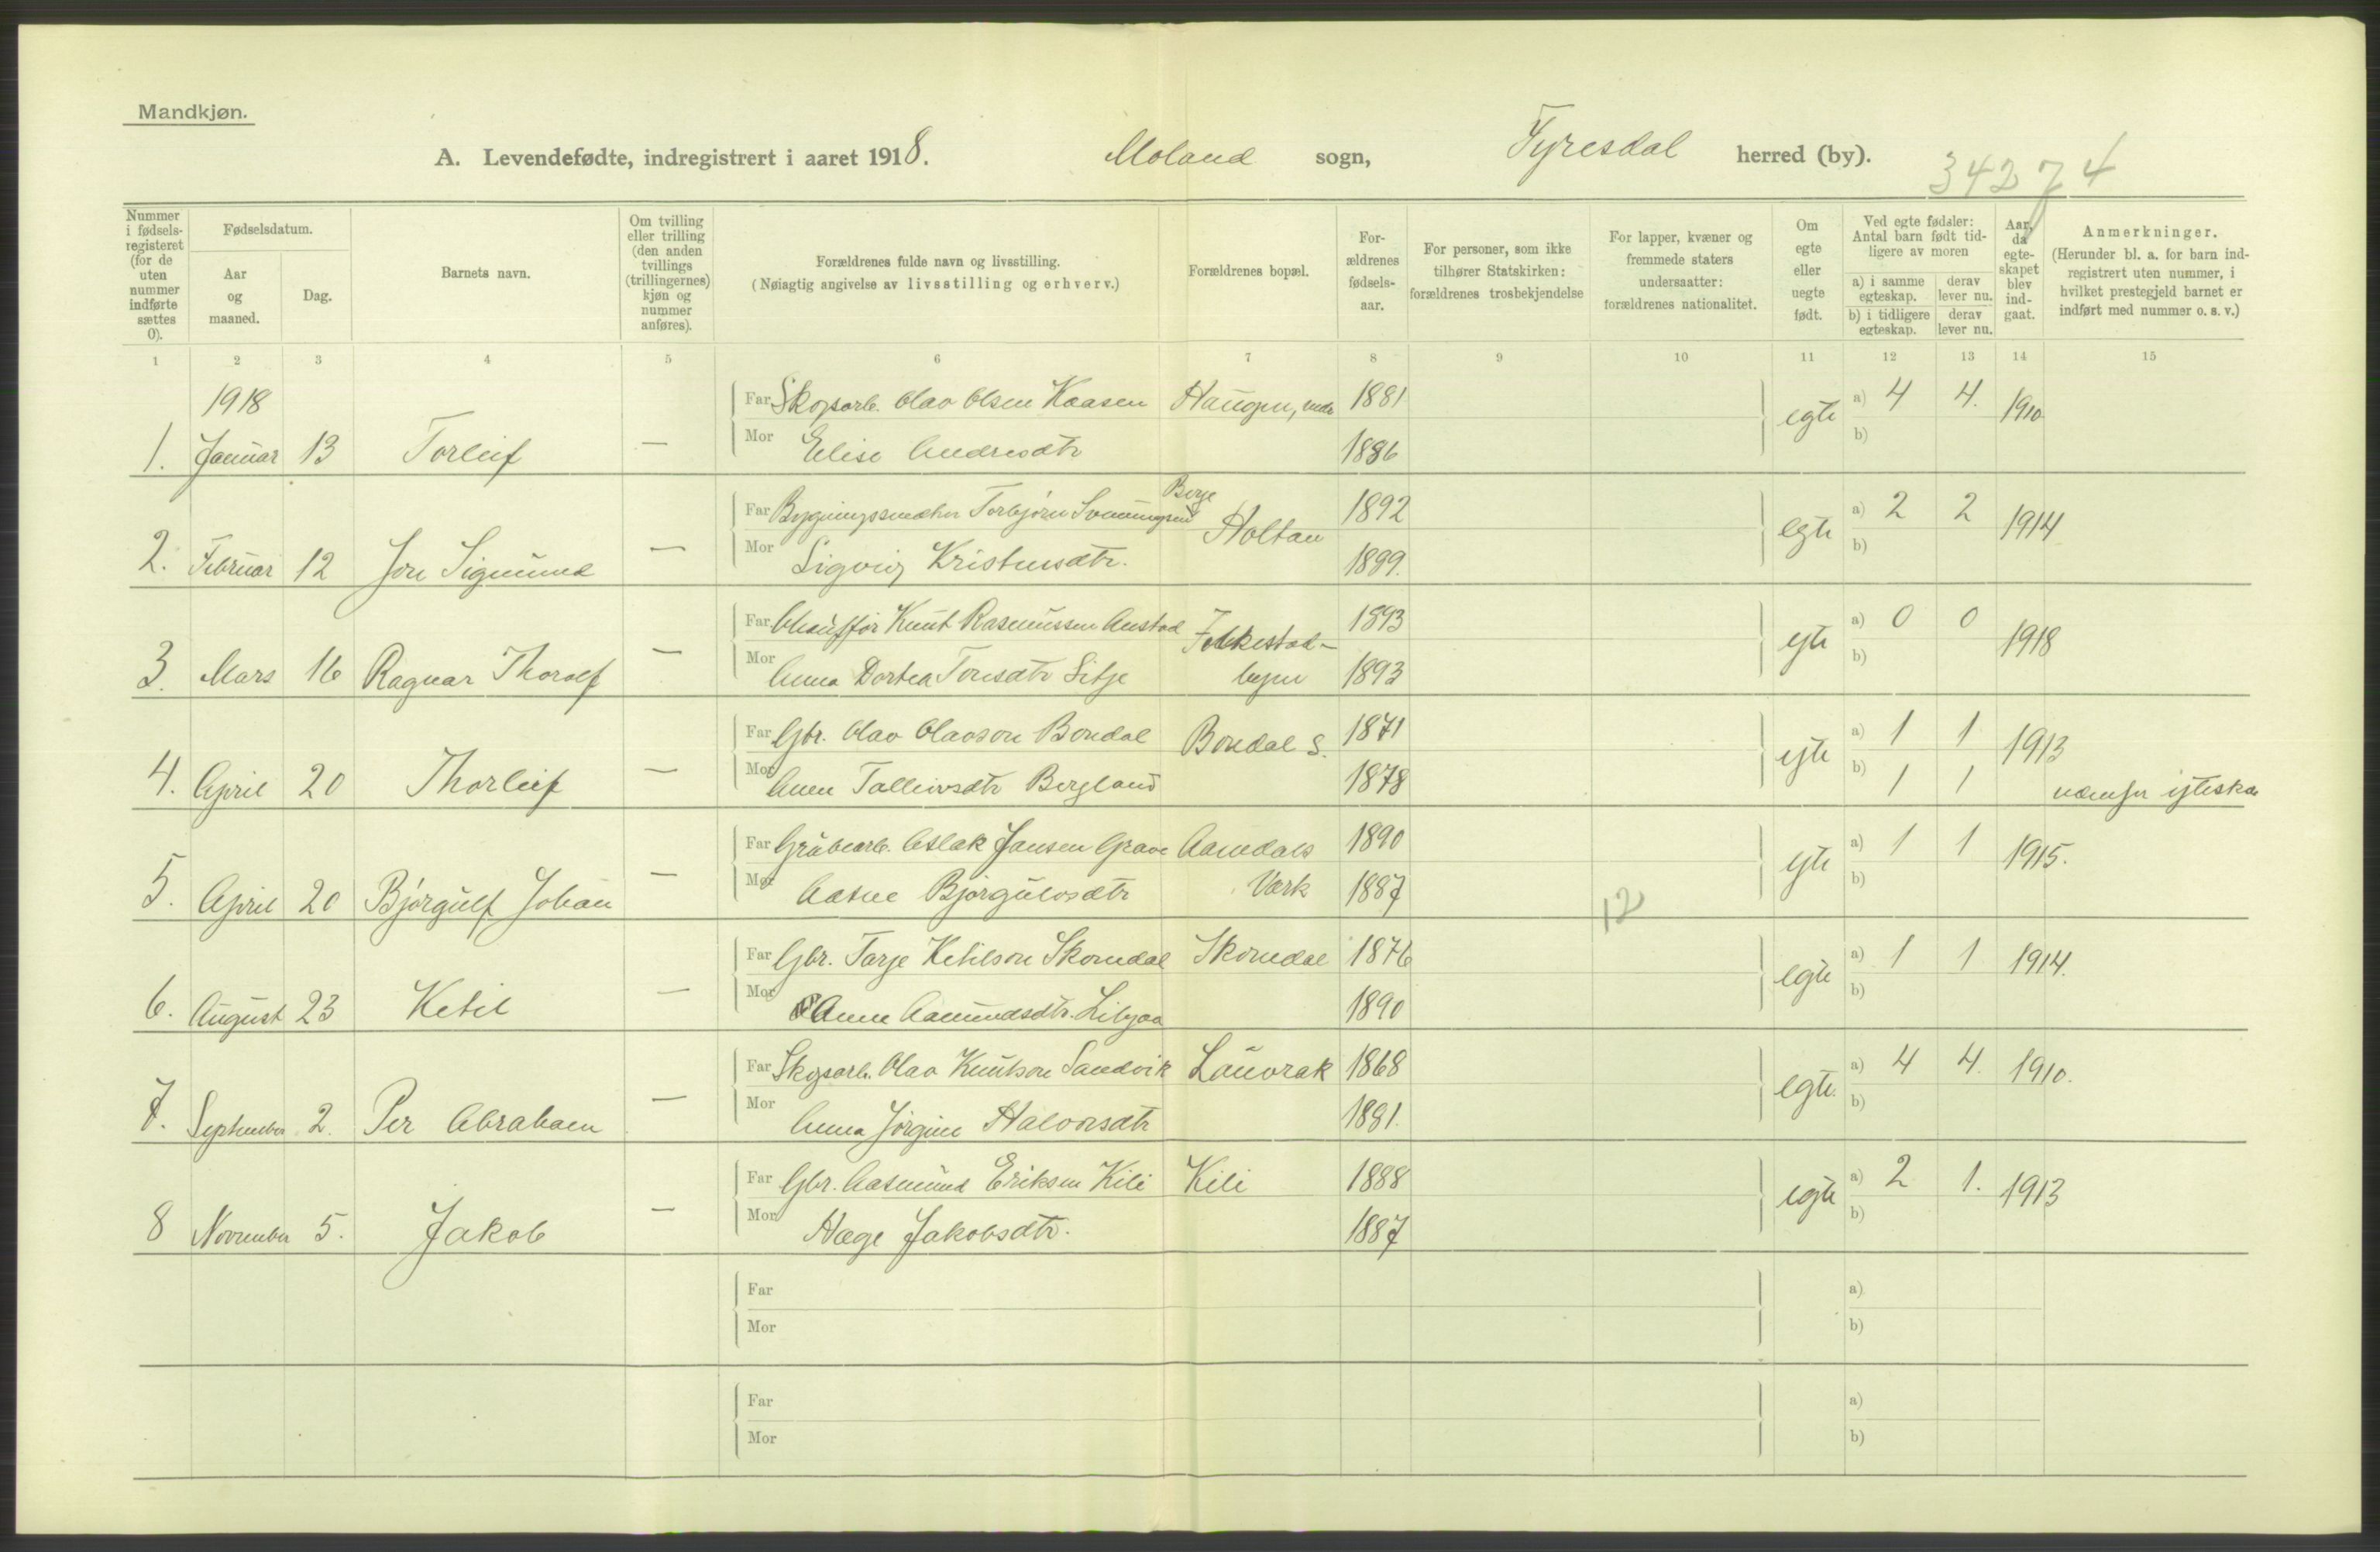 Mandkjøn.
A. Levendefødte, indregistrert i aaret 1918. Moland sogn, Tyresdal herred (by).
34274
Nummer i fødsels-registeret (for de uten nummer indførte sættes 0).
Fødselsdatum.
Aar og maaned.
Dag.
Barnets navn.
Om tvilling eller trilling (den anden tvillings (trillingernes) kjøn og nummer anføres).
Forældrenes fulde navn og livsstilling.
(Nøiagtig angivelse av livsstilling og erhverv.)
Forældrenes bopæl.
For-ældrenes fødsels-aar.
For personer, som ikke tilhører Statskirken: forældrenes trosbekjendelse
For lapper, kvæner og fremmede staters undersaatter: forældrenes nationalitet.
Om egte eller uegte født.
Ved egte fødsler: Antal barn født tid-ligere av moren
a) i samme egteskap.
derav lever nu.
b) i tidligere egteskap.
derav lever nu.
Aar, da egte-skapet blev ind-gaat.
Anmerkninger.
(Herunder bl. a. for barn ind-registrert uten nummer, i hvilket prestegjeld barnet er indført med nummer o. s. v.)
1 2 3 4 5 6 7 8 9 10 11 12 13 14 15
1918
Far Skogsarb. Olav Olsen Kaasen Haugen, 1881 egte a) 4 4. 1910
1. Januar 13 Torleif — Mor Elise Andresdtr 1886 b)
Berge
Far Bygningssnedker Torbjørn Sveinungsen Holtan 1892 egte a) 2 2 1914
2. Februar 12 Jon Sigmund — Mor Sigveig Kristensdtr. 1899. b)
Far Chauffør Knut Rasmussen Austad Folkestad- 1893 egte a) 0 0 1918
3. Mars 16 Ragnar Thorolf — Mor Anna Dortea Tonsdtr byen 1893 b)
Far Gbr. Olav Olavson Bondal Bondal S. 1871 egte a) 1 1 1913
4. April 20 Thorleif — Mor Anen Talleivsdtr Bergland 1878 b) 1 1
Far Grubearb. Aslak Jansen Grave Aamdals 1890 egte a) 1 1 1915.
5. April 20 Bjørgulf Johan — Mor Aasne Bjørgulvsdtr Værk 1887 b)
12
Far Gbr. Tarje Ketilson Skomdal Skomdal 1876 egte a) 1 1 1914.
6. August 23 Ketil — Mor Anne Aamundsdtr. 1890 b)
Far Skogsarb. Olav Knutson Sandvik Lauvrak 1868 egte. a) 4 4. 1910.
7. September 2. Per Abraham — Mor Anna Jørgine Halvorsdtr 1881. b)
Far Gbr. Aasmund Eriksen Kili Kili 1888 egte a) 2 1. 1913
8 November 5. Jakob — Mor Hæge Jakobsdtr. 1887 b)
Far a)
Mor b)
Far a)
Mor b)